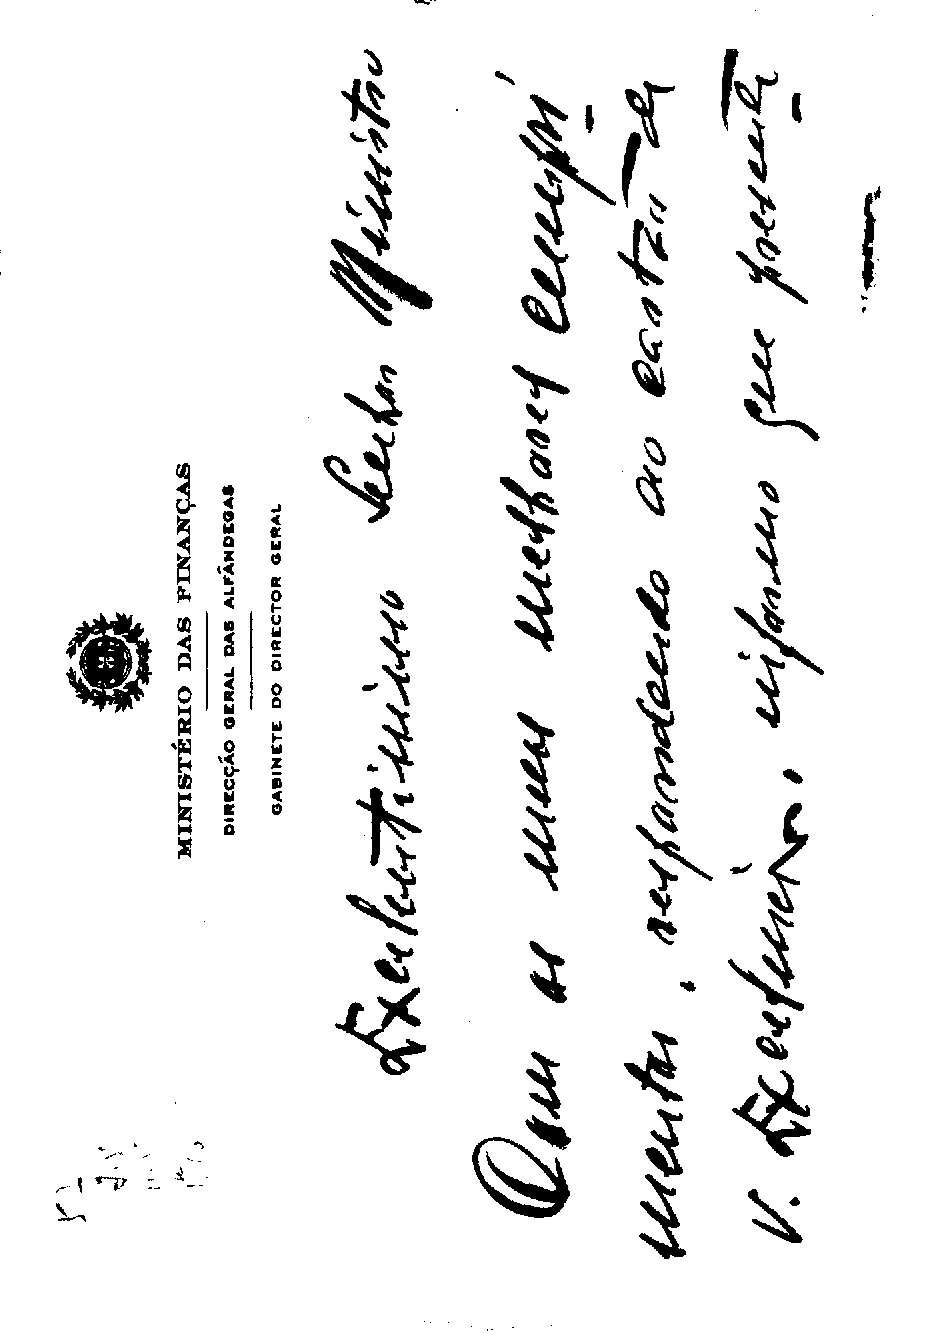 MINISTÉRIO DAS FINANÇAS
DIRECÇÃO GERAL DAS ALFÂNDEGAS
GABINETE DO DIRECTOR GERAL
Excelentissimo Senhor Ministro
Com os meus melhores cumpri-
mentos, respondendo ao cartão de
V. Excelencia, informo que presente-